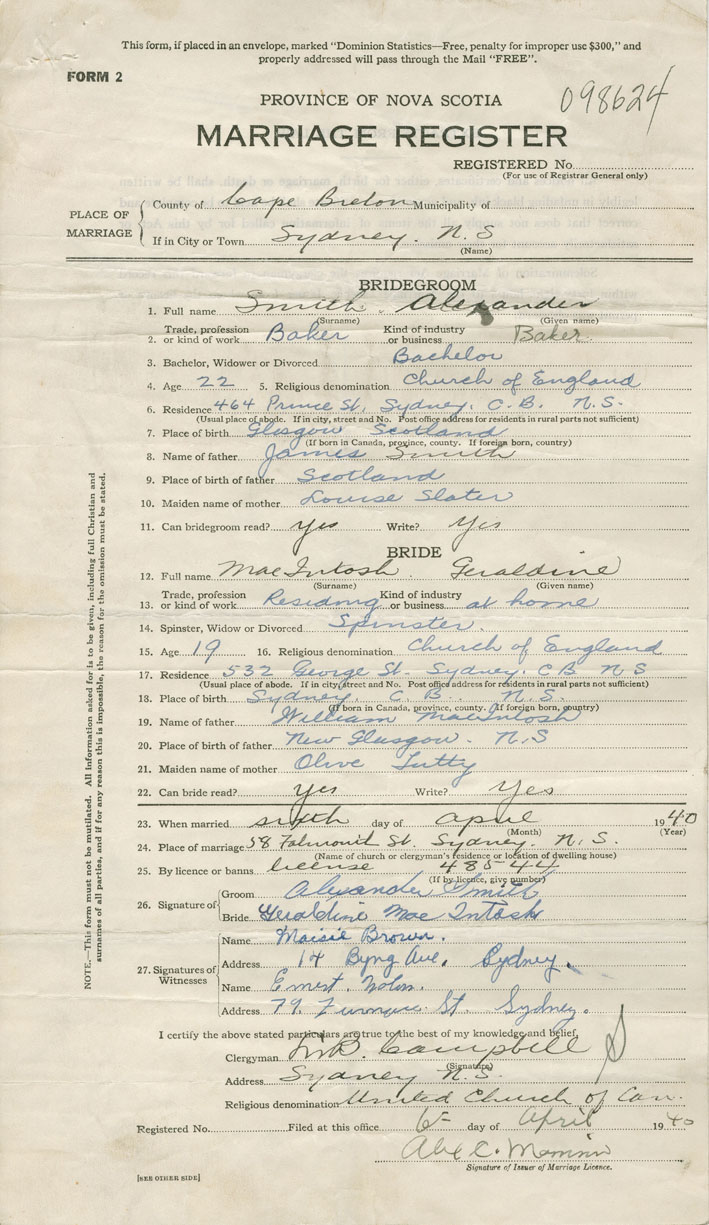 This form, if placed in an envelope, marked "Dominion Statistics—Free, penalty for improper use $300," and
properly addressed will pass through the Mail "FREE".
FORM 2
098624
PROVINCE OF NOVA SCOTIA
MARRIAGE REGISTER
REGISTERED No.
(For use of Registrar General only)
PLACE OF MARRIAGE
County of Cape Breton Municipality of
If in City or Town Sydney. N. S
(Name)
BRIDEGROOM
1. Full name Smith. Alexander
(Surname) (Given name)
2. Trade, profession or kind of work Baker Kind of industry or business Baker
3. Bachelor, Widower or Divorced Bachelor
4. Age 22 5. Religious denomination Church of England
6. Residence 464 Prince St, Sydney, C.B. N.S.
(Usual place of abode. If in city, street and No. Post office address for residents in rural parts not sufficient)
7. Place of birth Glasgow Scotland
(If born in Canada, province, county. If foreign born, country)
8. Name of father James Smith
9. Place of birth of father Scotland
10. Maiden name of mother Louise Slater
11. Can bridegroom read? yes Write? Yes
BRIDE
12. Full name MacIntosh. Geraldine
(Surname) (Given name)
13. Trade, profession or kind of work Residing Kind of industry or business at home
14. Spinster, Widow or Divorced Spinster.
15. Age 19 16. Religious denomination Church of England
17. Residence 532 George St. Sydney, C B N S
(Usual place of abode. If in city, street and No. Post office address for residents in rural parts not sufficient)
18. Place of birth Sydney, C. B. N. S.
(If born in Canada, province, county. If foreign born, country)
19. Name of father William MacIntosh
20. Place of birth of father New Glasgow. N.S
21. Maiden name of mother Olive Tutty
22. Can bride read? yes Write? Yes
23. When married sixth day of April 1940
(Month) (Year)
24. Place of marriage 58 St. Sydney. N. S.
(Name of church or clergyman's residence or location of dwelling house)
25. By licence or banns license 485-44
(If by licence, give number)
26. Signature of
Groom Alexander Smith
Bride Geraldine Mac Intosh
27. Signatures of Witnesses
Name Maisie Brown.
Address 14 Byng Ave, Sydney.
Name Ernest
Address 79. St. Sydney.
I certify the above stated particulars are true to the best of my knowledge and belief,
Clergyman Campbell
(Signature)
Address Sydney N.S.
Religious denomination United Church of Can.
Registered No. Filed at this office 6 day of April 1940
Signature of Issuer of Marriage Licence.
[SEE OTHER SIDE]
NOTE.—This form must not be mutilated. All information asked for is to be given, including full Christian and
surnames of all parties, and if for any reason this is impossible, the reason for the omission must be stated.